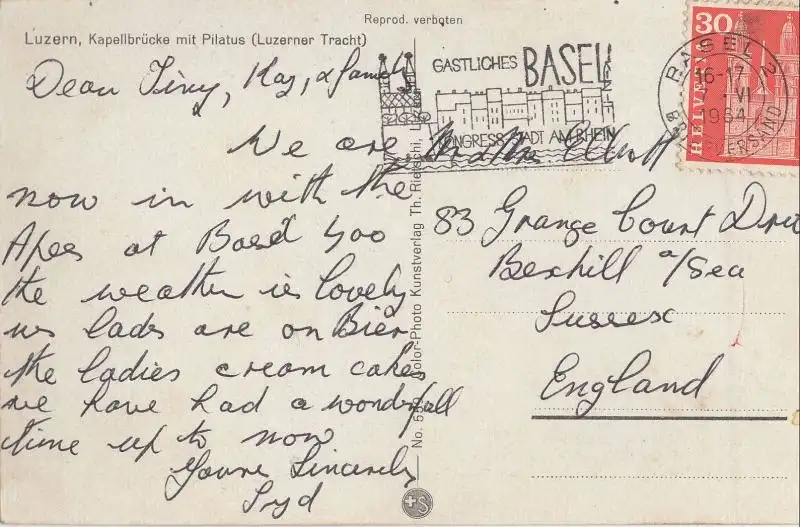 Reprod. verboten
Luzern, Kapellbrücke mit Pilatus (Luzerner Tracht)
Dear Tiny, Kay, & family
We are
now in with the
Apes at Basel Zoo
the weather is lovely
us lads are on Bier
the ladies cream cakes
we have had a wonderfull
time up to now
Yours Sincerely
Syd
GASTLICHES BASEL
KONGRESSSTADT AM RHEIN
BASEL 2
16-17
VI
1964
30
HELVETIA
Mr & Mrs Elliott
83 Grange Court Drive
Bexhill a/Sea
Sussex
England
Color-Photo Kunstverlag Th. Rietschi,